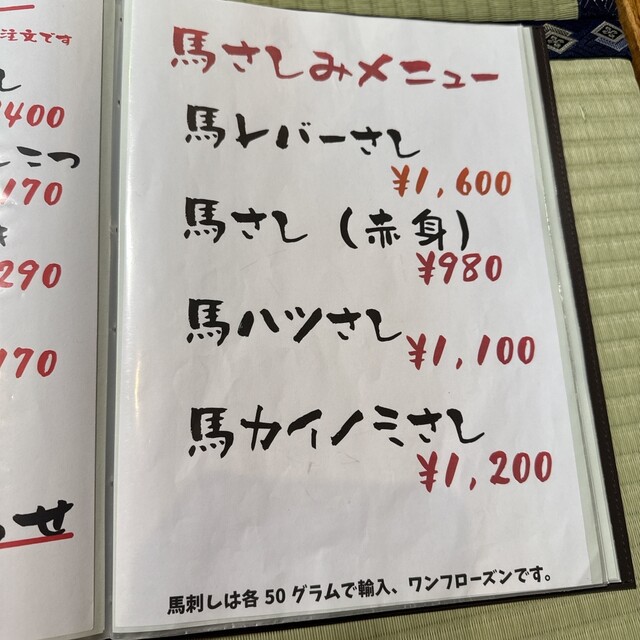 注文です
し
400
こつ
170
き
290
170
せ
馬さしみメニュー
馬レバーさし
¥1,600
馬さし(赤身)
¥980
馬ハツさし
¥1,100
馬カイノミさし
¥1,200
馬刺しは各50グラムで輸入、ワンフローズンです。